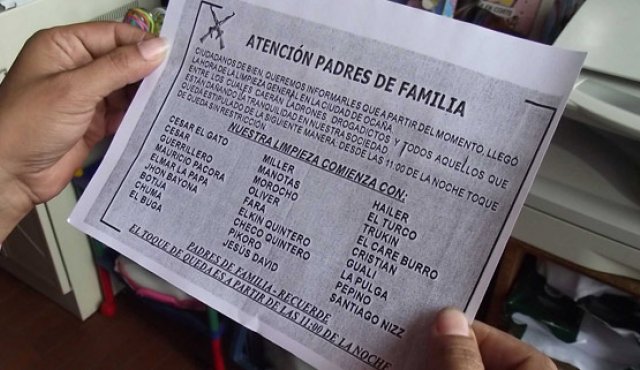 ATENCIÓN PADRES DE FAMILIA
CIUDADANOS DE BIEN, QUEREMOS INFORMARLES QUE A PARTIR DEL MOMENTO, LLEGÓ
LA HORA DE LA LIMPIEZA GENERAL EN LA CIUDAD DE OCAÑA
ENTRE LOS CUALES CAERÁN LADRONES DROGADICTOS Y TODOS AQUELLOS QUE
ESTÁN DAÑANDO LA TRANQUILIDAD EN NUESTRA SOCIEDAD
QUEDA ESTIPULADO DE LA SIGUIENTE MANERA: DESDE LAS 11:00 DE LA NOCHE TOQUE
DE QUEDA SIN RESTRICCIÓN
NUESTRA LIMPIEZA COMIENZA CON:
CESAR EL GATO
CESAR
GUERRILLERO
MAURICIO PACORA
ELMAR LA PAPA
JHON BAYONA
BOTIJA
CHUMA
EL BUGA
MILLER
MANOTAS
MOROCHO
OLIVER
FARA
ELKIN QUINTERO
CHECO QUINTERO
PIKORO
JESUS DAVID
HAILER
EL TURCO
TRUKIN
EL CARE BURRO
CRISTIAN
GUALI
LA PULGA
PEPINO
SANTIAGO NIZZ
PADRES DE FAMILIA - RECUERDE
EL TOQUE DE QUEDA ES A PARTIR DE LAS 11:00 DE LA NOCHE